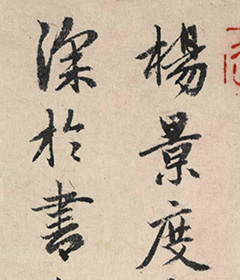 楊景度
深於書